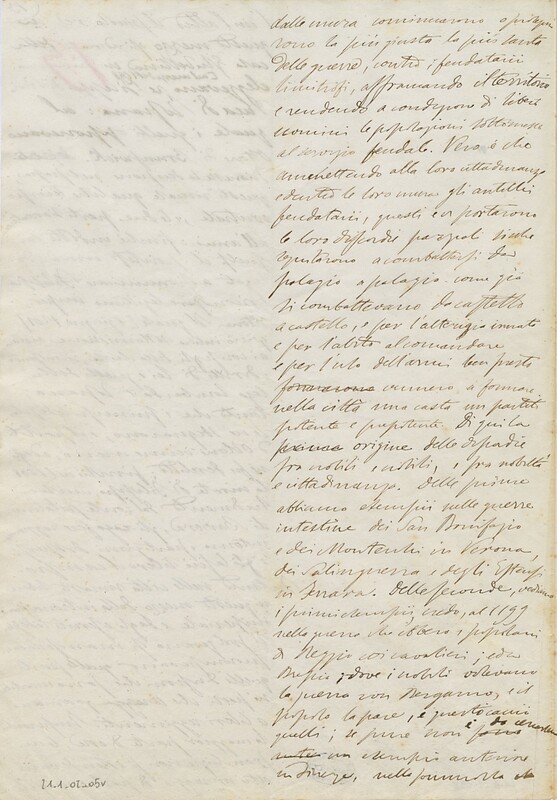 dalle mura cominciarono
rono la più giusta la più santa
delle guerre, contro i feudatarii
limitrofi, affrancando il territorio
e rendendo a condizione di liberi
uomini le popolazioni sottomesse
al servizio feudale. Vero è che
ammettendo alla loro cittadinanza
e dentro le loro mura gli antichi
feudatarii, questi vi portarono
le loro discordie
a combattersi da
palagio a palagio come già
si combattevano da castello
a castello, e per l'alterigia innata
e per l'abito al comandare
e per l'uso dell'armi ben presto
formarono vennero a formare
nella città una casta un partito
potente e prepotente. Di qui la
prima origine delle discordie
fra nobili e nobili, e fra nobiltà
e cittadinanza. Delle prime
abbiamo esempii nelle guerre
intestine dei San Bonifazio
e dei Montecchi in Verona,
dei Salinguerra e degli Estensi
in Ferrara. Delle seconde, vediamo
i primi esempii, credo, al 1199
nella guerra che ebbero i popolani
di Reggio coi cavalieri; e in
Brescia, dove i nobili volevano
la guerra con Bergamo, e il
popolo la pace, e questo cacciò
quelli; se pure non è da cercarsene
un esempio anteriore
in Firenze, nella
11-1-01-05v